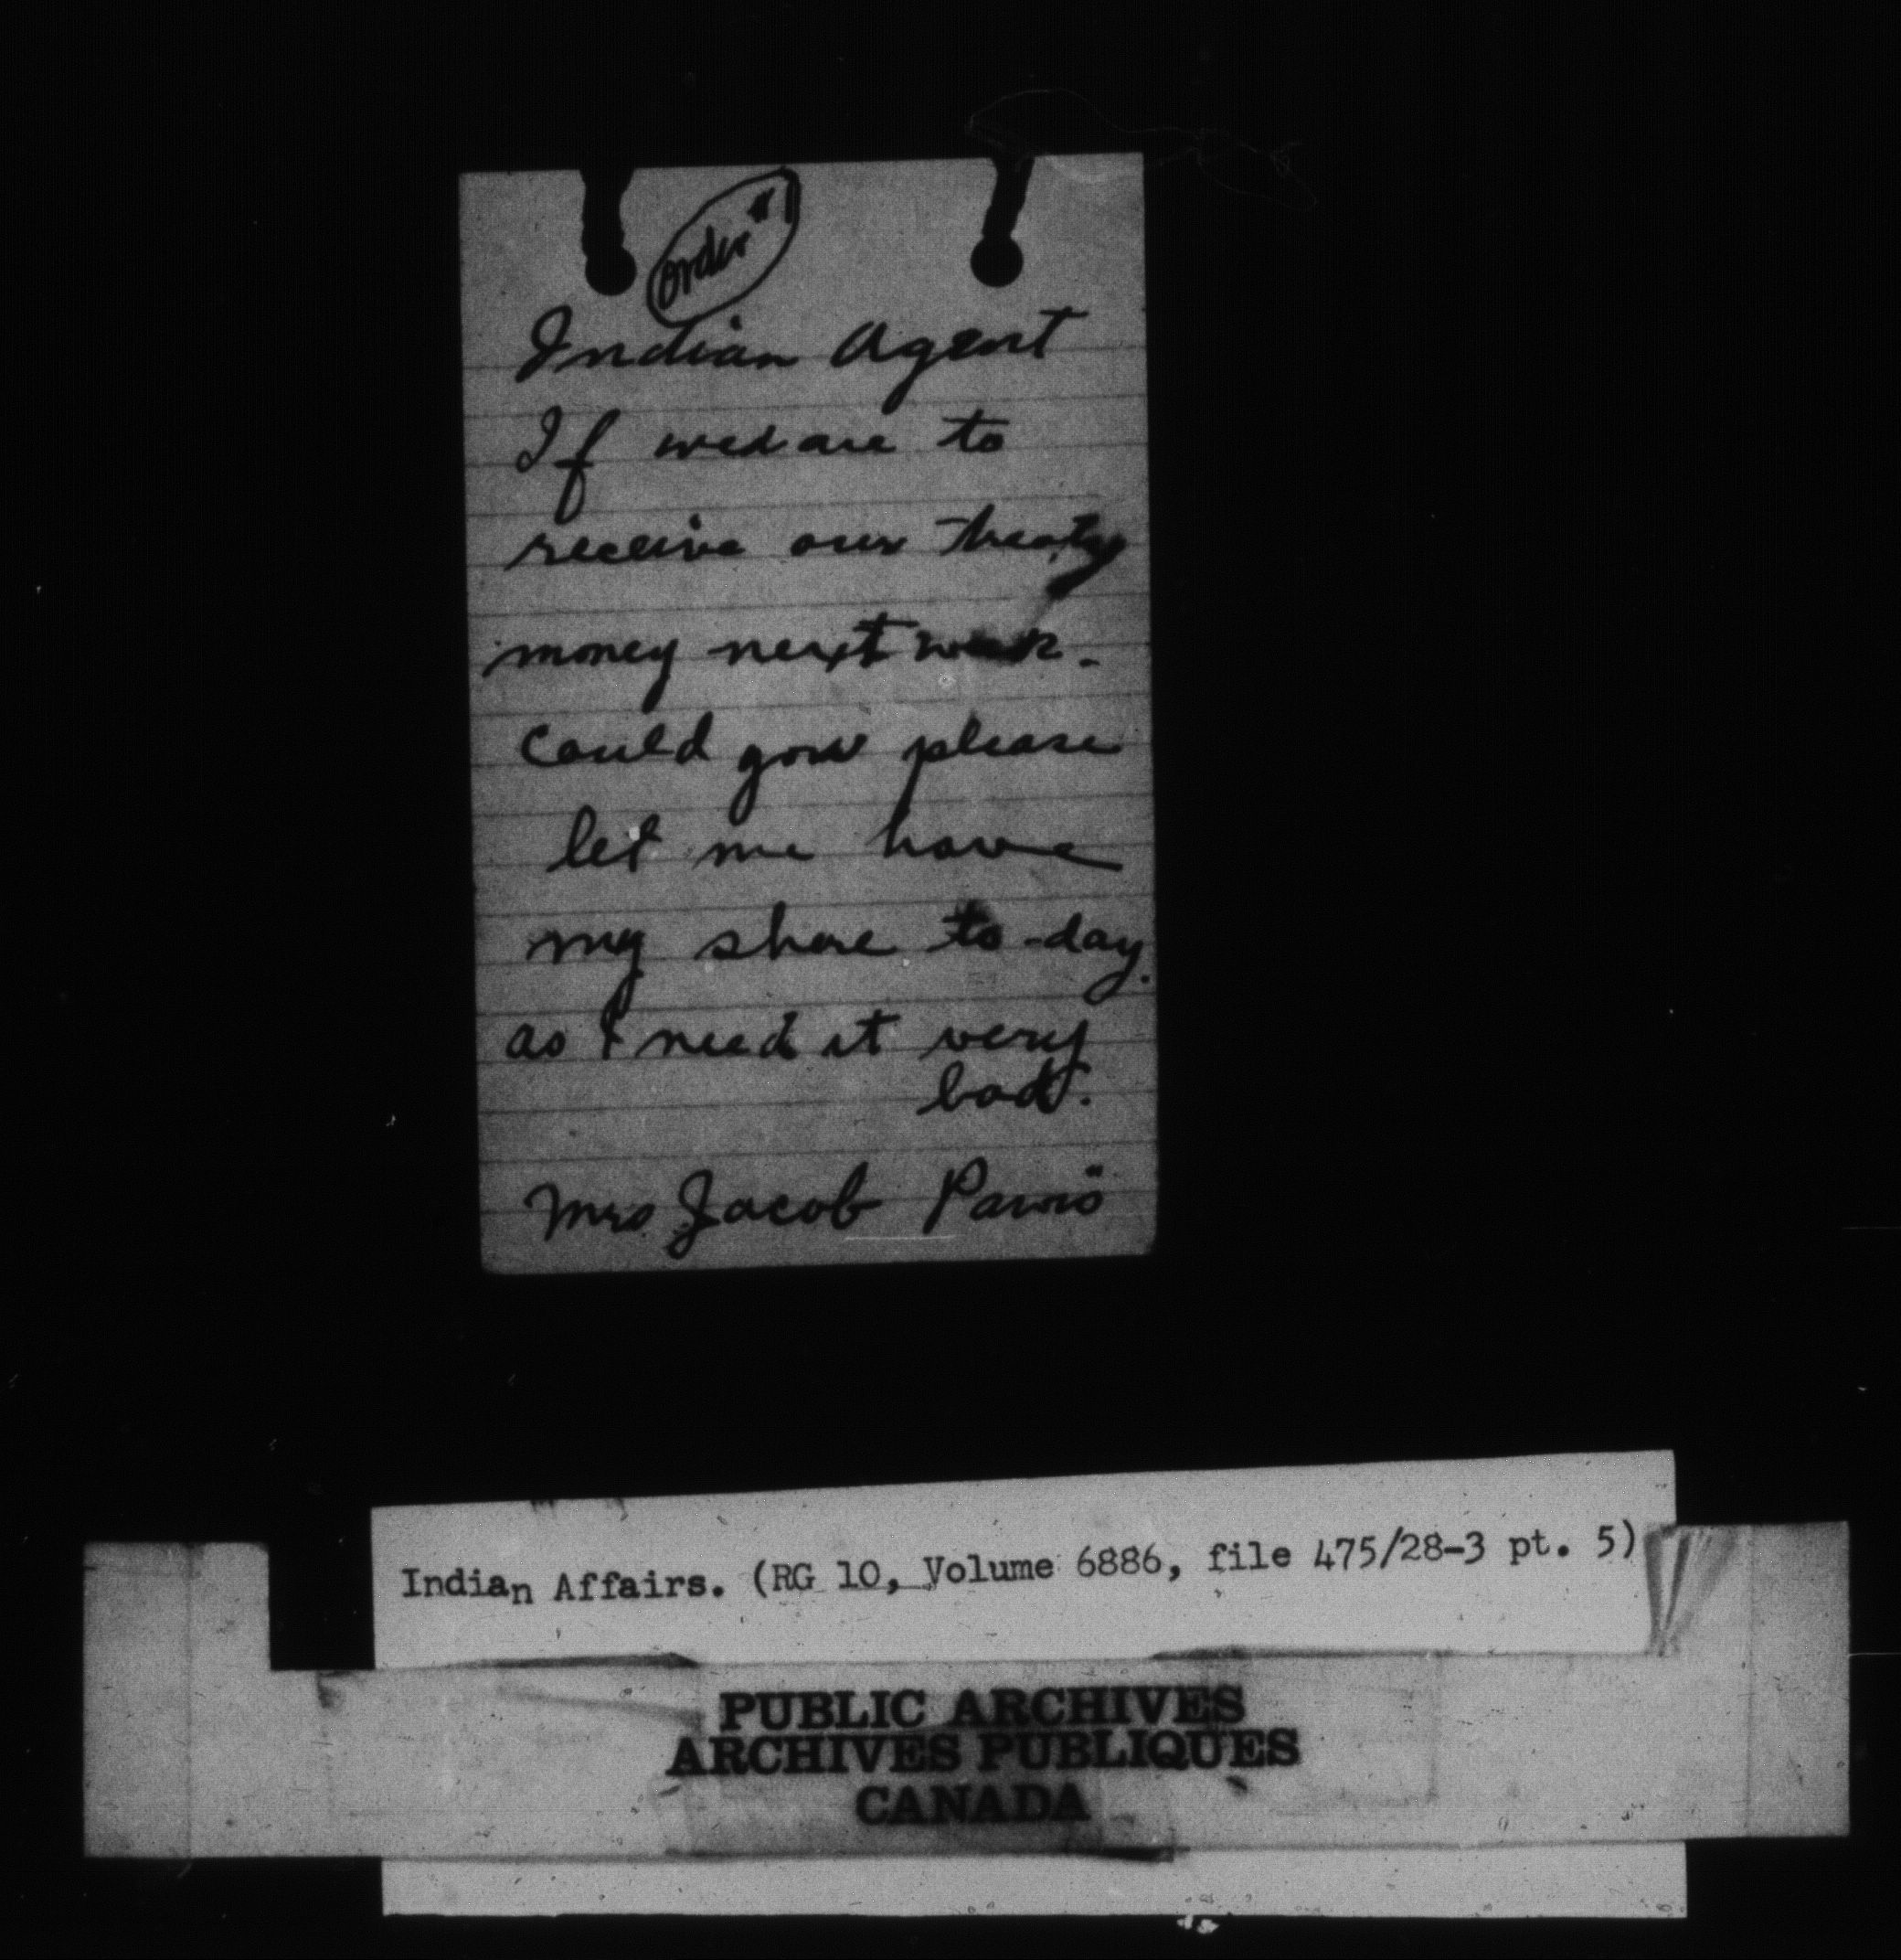 Order "1
Indian Agent
If we are to
receive our treaty
money next week.
Could you please
let me have
my share to-day.
as I need it very
bad.
Mrs Jacob
Indian Affairs. (RG 10, Volume 6886, file 475/28-3 pt. 5)
PUBLIC ARCHIVES
ARCHIVES PUBLIQUES
CANADA